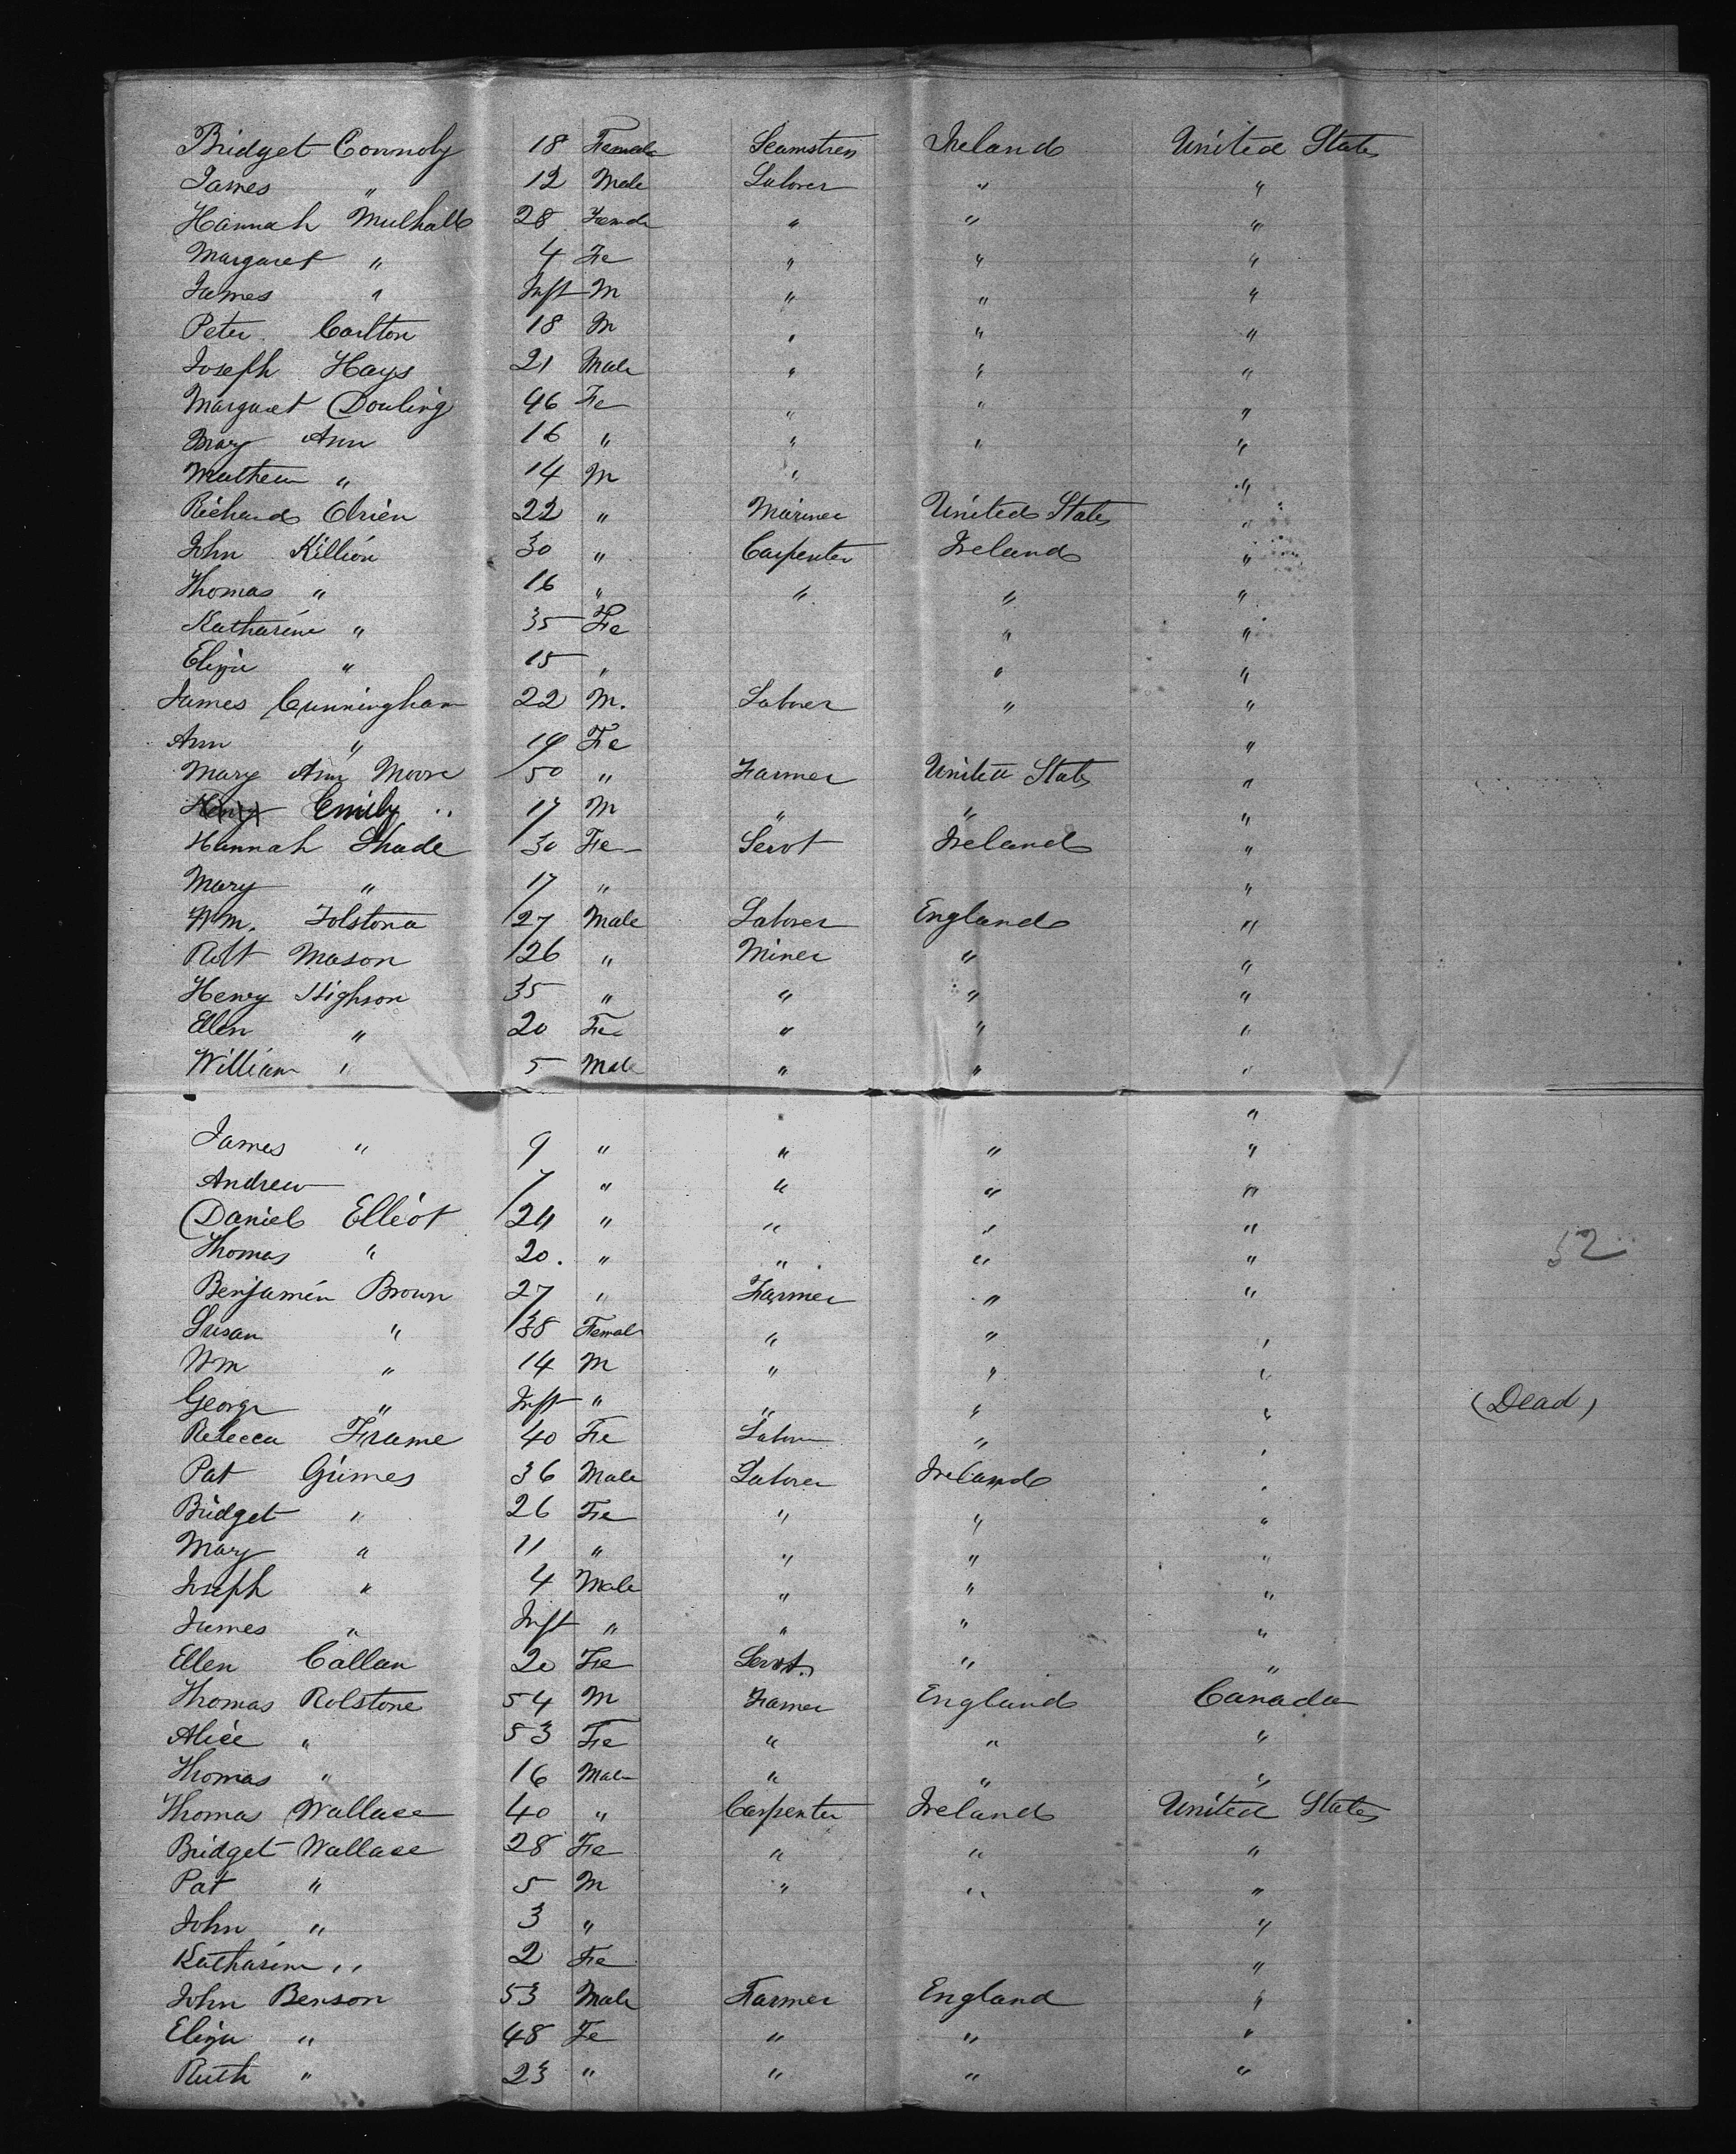 Bridget Connoly 18 Female Seamstress Ireland United States
James " 12 Male Laborer " "
Hannah Mulhall 28 Female " " "
Margaret " 4 Fe " " "
James " Inft M " " "
Peter Carlton 18 M " " "
Joseph Hays 21 Male " " "
Margaret Dowling 46 Fe " " "
Mary Ann 16 " " " "
Mathew " 14 M " "
Richard Obrien 22 " Mariner United States "
John Killion 30 " Carpenter Ireland "
Thomas " 16 " " " "
Katharine " 35 Fe " "
Eliza " 15 " " "
James Cunningham 22 M. Laborer " "
Ann " 19 Fe "
Mary Ann Moore 50 " Farmer United States "
Emily " 17 M " " "
Hannah Shade 30 Fe Servt Ireland "
Mary " 17 " "
Wm. Tolstona 27 Male Laborer England "
Robt Mason 26 " Miner " "
Henry Highson 35 " " " "
Ellen " 20 Fe " " "
William " 5 Male " " "
"
James " 9 " " " "
Andrew 7 " " " "
Daniel Elliot 24 " " " "
Thomas " 20. " " " " 52
Benjamin Brown 27 " Farmer " "
Susan " 38 Female " " "
Wm " 14 M " " "
George " Inft " " " " (Dead)
Rebecca Frame 40 Fe Labor " "
Pat Grimes 36 Male Laborer Ireland "
Bridget " 26 Fe " " "
Mary " 11 " " " "
Joseph " 4 Male " " "
James " Inft " " " "
Ellen Callan 20 Fe Servt. " "
Thomas Rolstone 54 M Farmer England Canada
Alice " 53 Fe " " "
Thomas " 16 Male " " "
Thomas Wallace 40 " Carpenter Ireland United States
Bridget Wallace 28 Fe " " "
Pat " 5 M " " "
John " 3 " "
Katharine " 2 Fe "
John Benson 53 Male Farmer England "
Eliza " 48 Fe " " "
Ruth " 23 " " " "